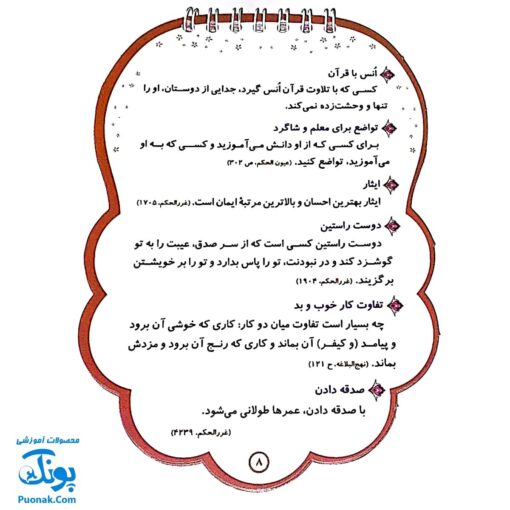 اُنس با قرآن
کسی که با تلاوت قرآن اُنس گیرد، جدایی از دوستان، او را
تنها و وحشت‌زده نمی‌کند.
تواضع برای معلم و شاگرد
برای کسی که از او دانش می‌آموزید و کسی که به او
می‌آموزید، تواضع کنید. (عیون الحکم، ص ۳۰۲)
ایثار
ایثار بهترین احسان و بالاترین مرتبهٔ ایمان است. (غررالحکم، ۱۷۰۵)
دوست راستین
دوست راستین کسی است که از سر صدق، عیبت را به تو
گوشزد کند و در نبودنت، تو را پاس بدارد و تو را بر خویشتن
برگزیند. (غررالحکم، ۱۹۰۴)
تفاوت کار خوب و بد
چه بسیار است تفاوت میان دو کار: کاری که خوشی آن برود
و پیامد (و کیفر) آن بماند و کاری که رنج آن برود و مزدش
بماند. (نهج‌البلاغه، ح ۱۲۱)
صدقه دادن
با صدقه دادن، عمرها طولانی می‌شود.
(غررالحکم، ۴۲۳۹)
۸
محصولات آموزشی
پونک
Puonak.Com